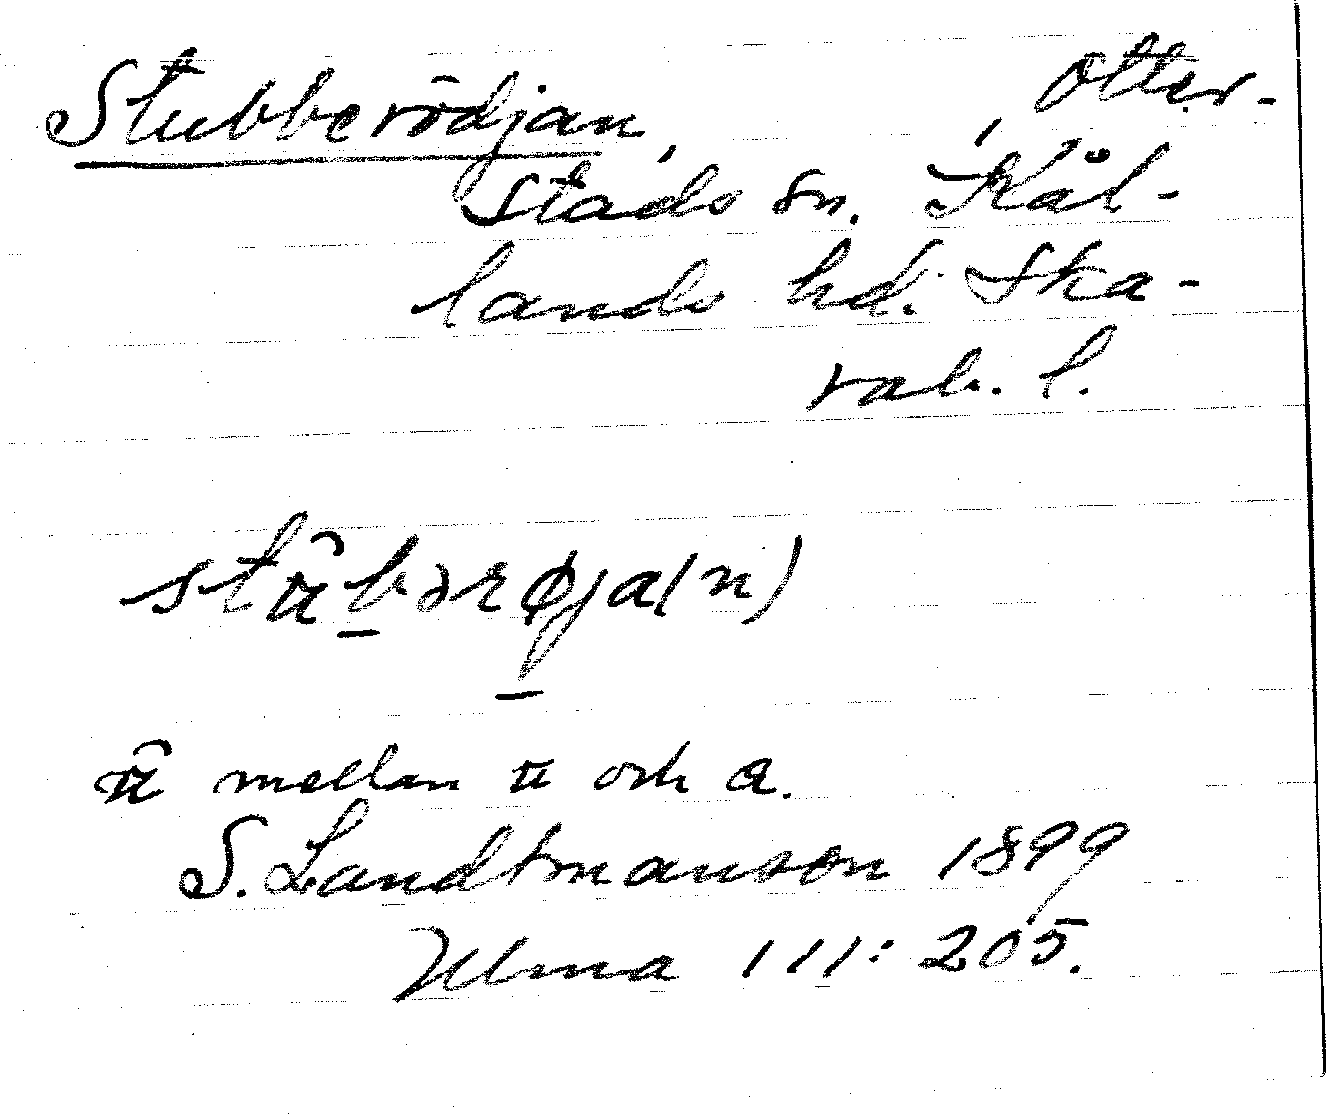 Stubberödjan, Otter-
stads sn. Kål-
lands hd. Ska-
rab. l.
stu͡bərøja(n)
u͡ mellan u och a.
S. Landtmanson 1899
Ulma 111: 205.